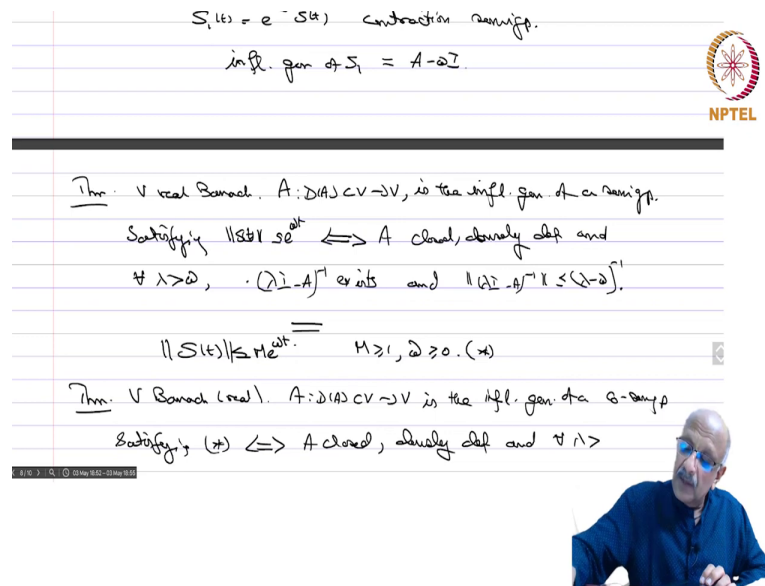 S₁(t) = e⁻ S(t) contraction semigp.
infl. gen of S₁ = A-ωI.
NPTEL
Thm. V real Banach. A: D(A) ⊂ V → V, is the infl. gen. of a semigp.
Satisfying ‖S(t)‖ ≤ e^{ωt} ⟺ A closed, densely def and
∀ λ>ω, (λI-A)⁻¹ exists and ‖(λI-A)⁻¹‖ ≤ (λ-ω)⁻¹.
‖S(t)‖ ≤ Me^{ωt}. M ≥ 1, ω ≥ 0. (*)
Thm. V Banach (real). A: D(A) ⊂ V → V is the infl. gen. of a c₀-semigp
Satisfying (*) ⟺ A closed, densely def and ∀ λ>
8/10 03 May 18:52-03 May 18:55